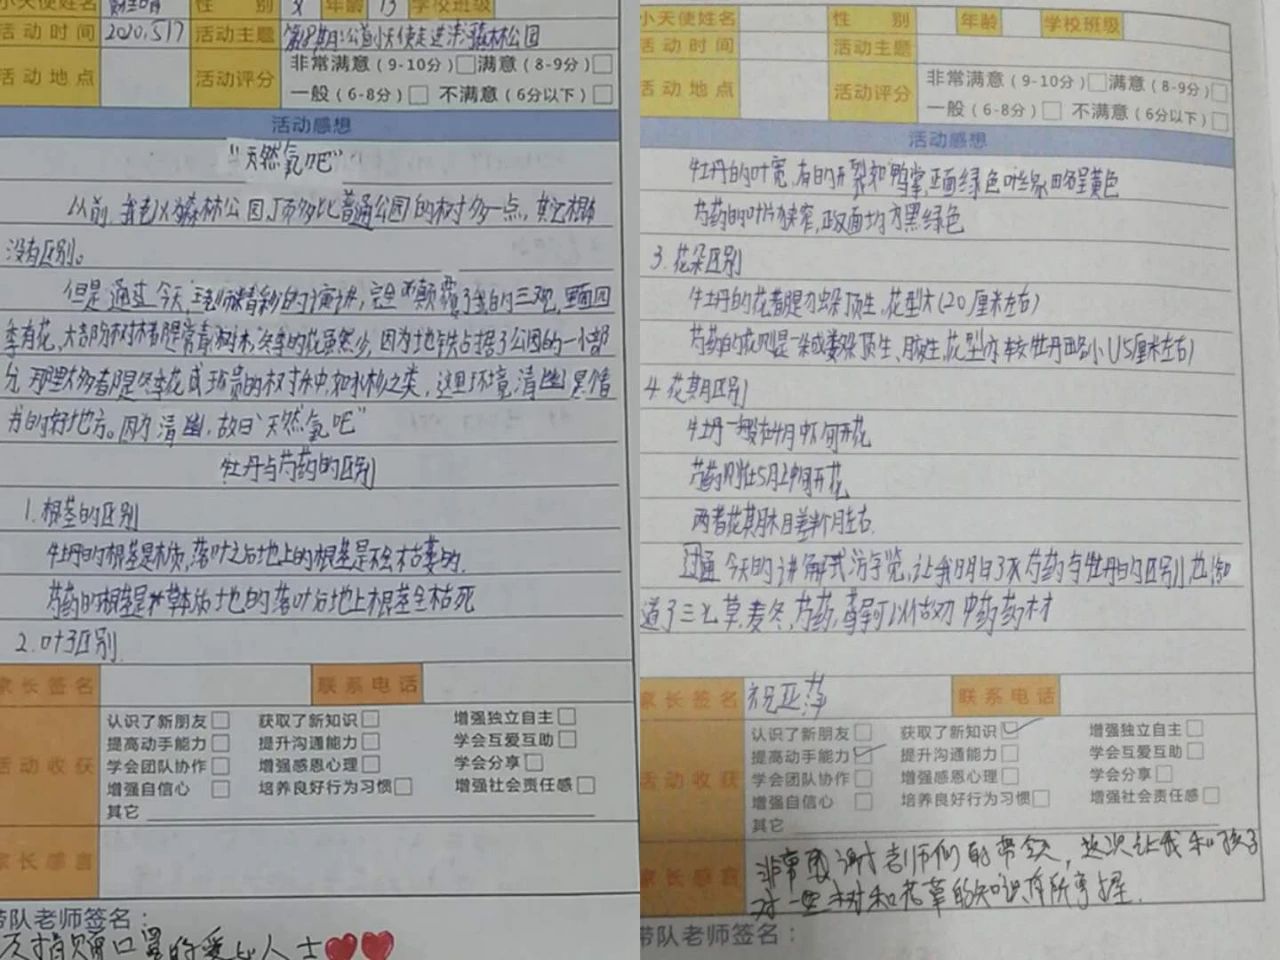 小天使姓名 性别 女 年龄 13 学校班级
活动时间 2020.5.17 活动主题 公益小天使走进 森林公园
活动地点 活动评分 非常满意(9-10分) 满意(8-9分)
一般(6-8分) 不满意(6分以下)
活动感想
“天然氧吧”
以前,我老以为森林公园,顶多比普通公园的树多一点,其它根本
没有区别。
但是通过今天,王老师精彩的演讲,完全颠覆了我的三观,里面四
季有花,大部分树木都是常青树木,冬季的花虽然少,因为地铁占据了公园的一小部
分,那里大多都是冬季花或珍贵的树木中,如水杉之类,这里环境清幽,是借
书的好地方。因为清幽,故曰“天然氧吧”
牡丹与芍药的区别
1.根茎的区别
牡丹的根茎是木质,落叶之后地上的根茎是不会枯萎的.
芍药的根茎是草本 落叶后地上根茎全枯死
2.叶子区别
家长签名 联系电话
活动收获
认识了新朋友 获取了新知识 增强独立自主
提高动手能力 提升沟通能力 学会互爱互助
学会团队协作 增强感恩心理 学会分享
增强自信心 培养良好行为习惯 增强社会责任感
其它
家长感言
带队老师签名:
捐赠口罩的爱心人士
小天使姓名 性别 年龄 学校班级
活动时间 活动主题
活动地点 活动评分 非常满意(9-10分) 满意(8-9分)
一般(6-8分) 不满意(6分以下)
活动感想
牡丹的叶宽,有的开裂如鸭掌,正面绿色 略呈黄色
芍药的叶片狭窄,正反面均为黑绿色
3.花朵区别
牡丹的花都是独朵顶生,花型大(20厘米左右)
芍药的花则是一朵或数朵顶生、腋生,花型亦较牡丹略小(15厘米左右)
4.花期区别
牡丹一般在4月中下旬开花
芍药则在5月上中旬开花
两者花期相差半个月左右.
通过今天的讲解式游学览,让我明白了芍药与牡丹的区别,也知
道了三七草,麦冬,芍药,等可以做为中药药材
家长签名 祝亚萍 联系电话
活动收获
认识了新朋友 获取了新知识 增强独立自主
提高动手能力 提升沟通能力 学会互爱互助
学会团队协作 增强感恩心理 学会分享
增强自信心 培养良好行为习惯 增强社会责任感
其它
家长感言 非常感谢老师们的带领,这次让我和孩子
对一些树和花草的知识有所掌握.
带队老师签名: